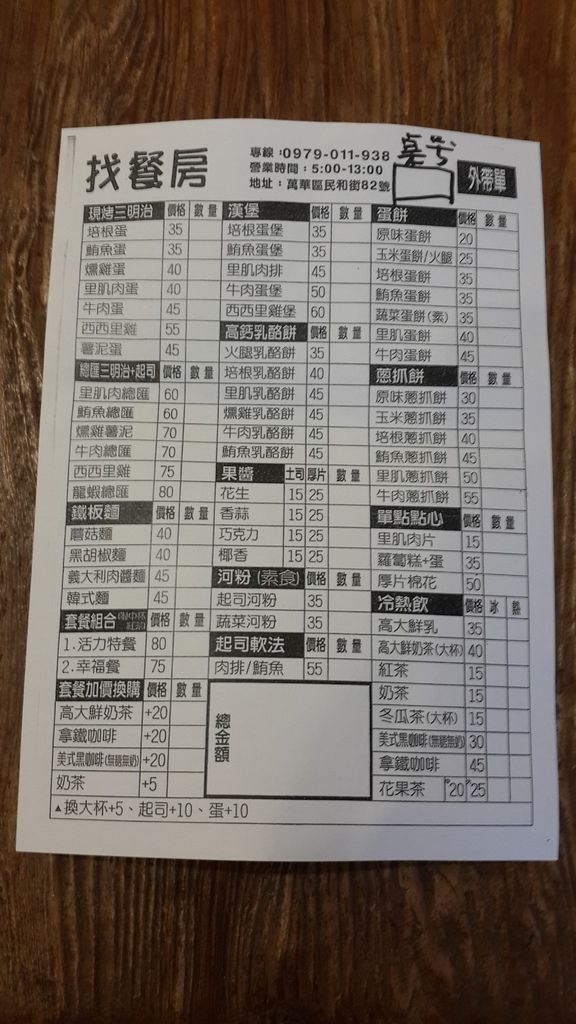 找餐房
專線:0979-011-938
營業時間:5:00-13:00
地址:萬華區民和街82號
桌号
外帶單
現烤三明治 價格 數量
培根蛋 35
鮪魚蛋 35
燻雞蛋 40
里肌肉蛋 40
牛肉蛋 45
西西里雞 55
薯泥蛋 45
總匯三明治+起司 價格 數量
里肌肉總匯 60
鮪魚總匯 60
燻雞薯泥 70
牛肉總匯 70
西西里雞 75
龍蝦總匯 80
鐵板麵 價格 數量
蘑菇麵 40
黑胡椒麵 40
義大利肉醬麵 45
韓式麵 45
套餐組合 價格 數量
1.活力特餐 80
2.幸福餐 75
套餐加價換購 價格 數量
高大鮮奶茶 +20
拿鐵咖啡 +20
美式黑咖啡(無糖無奶) +20
奶茶 +5
漢堡 價格 數量
培根蛋堡 35
鮪魚蛋堡 35
里肌肉排 45
牛肉蛋堡 50
西西里雞堡 60
高鈣乳酪餅 價格 數量
火腿乳酪餅 35
培根乳酪餅 40
里肌乳酪餅 45
燻雞乳酪餅 45
牛肉乳酪餅 45
鮪魚乳酪餅 45
果醬 土司 厚片 數量
花生 15 25
香蒜 15 25
巧克力 15 25
椰香 15 25
河粉(素食) 價格 數量
起司河粉 35
蔬菜河粉 35
起司軟法 價格 數量
肉排/鮪魚 55
總金額
蛋餅 價格 數量
原味蛋餅 20
玉米蛋餅/火腿 25
培根蛋餅 35
鮪魚蛋餅 35
蔬菜蛋餅(素) 35
里肌蛋餅 40
牛肉蛋餅 45
蔥抓餅 價格 數量
原味蔥抓餅 30
玉米蔥抓餅 35
培根蔥抓餅 40
鮪魚蔥抓餅 45
里肌蔥抓餅 50
牛肉蔥抓餅 55
單點點心 價格 數量
里肌肉片 15
蘿蔔糕+蛋 35
厚片棉花 50
冷熱飲 價格 冰 熱
高大鮮乳 35
高大鮮奶茶(大杯) 40
紅茶 15
奶茶 15
冬瓜茶(大杯) 15
美式黑咖啡(無糖無奶) 30
拿鐵咖啡 45
花果茶 20 25
▲換大杯+5、起司+10、蛋+10